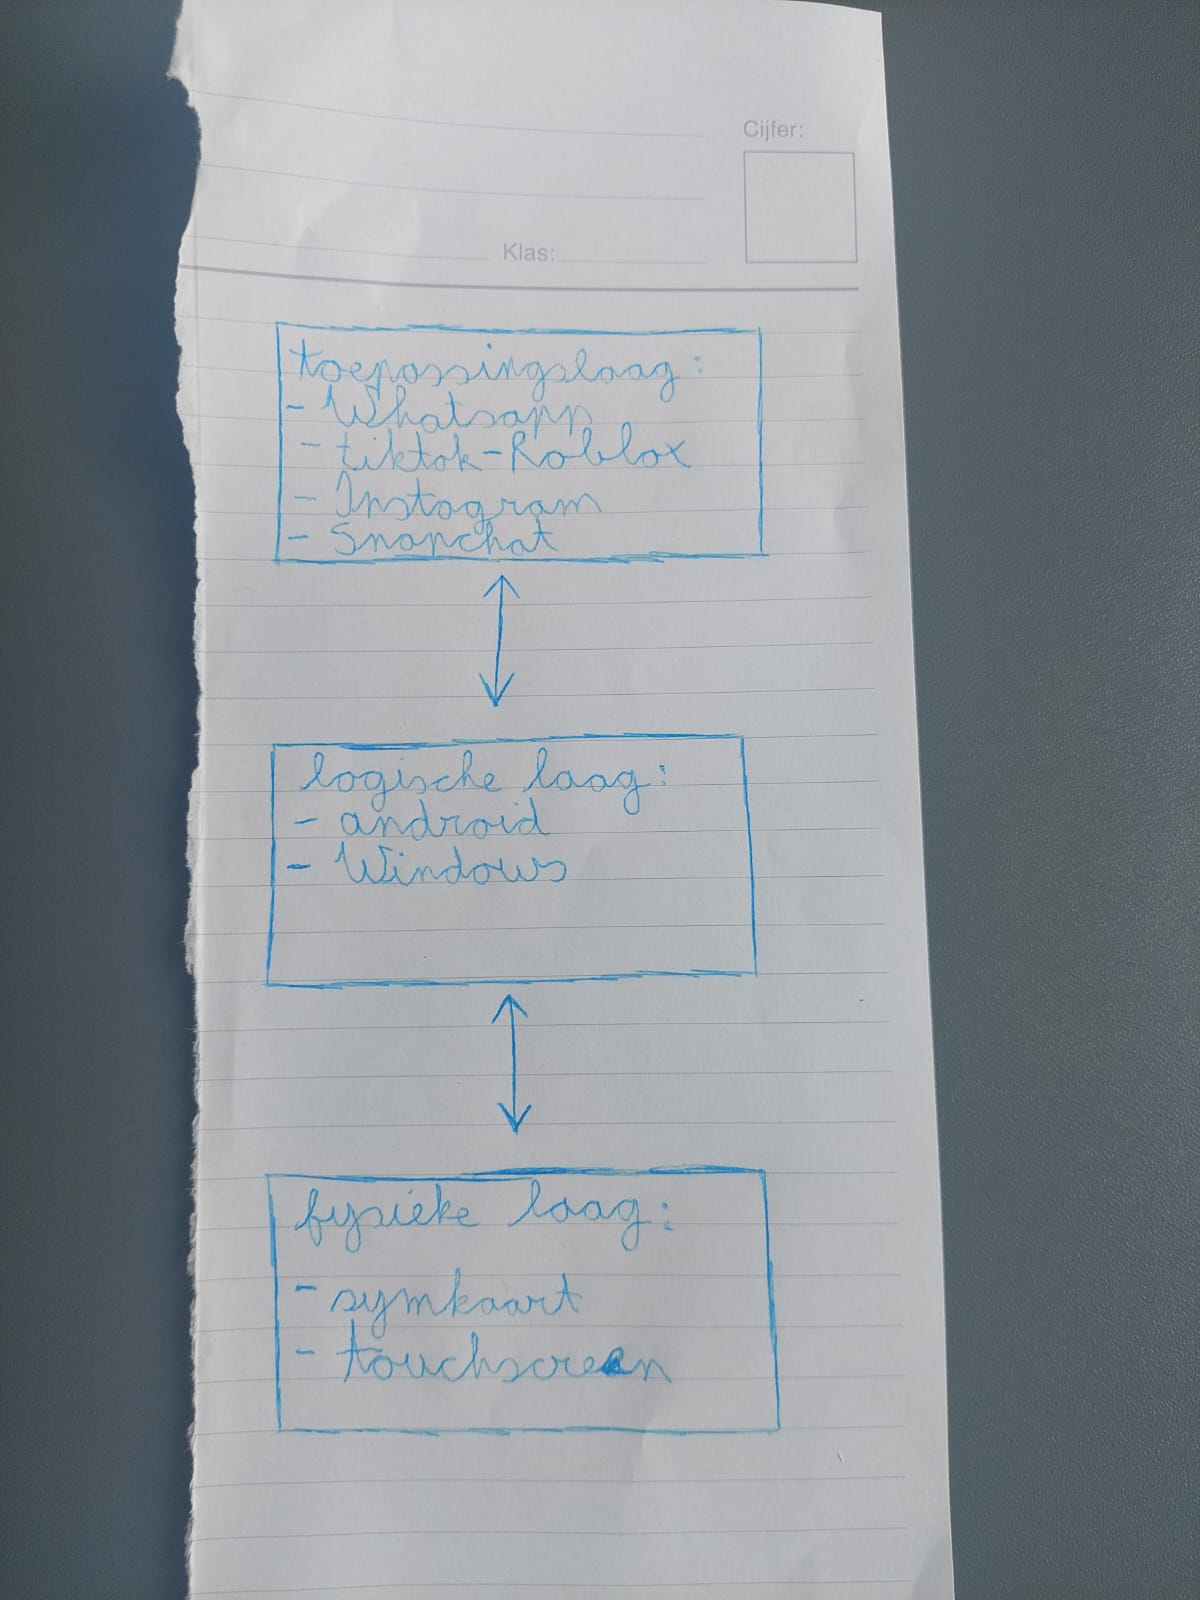 Cijfer:
Klas:
toepassingslaag:
- Whatsapp
- tiktok-Roblox
- Instagram
- Snapchat
logische laag:
- android
- Windows
fysieke laag:
- symkaart
- touchscreen